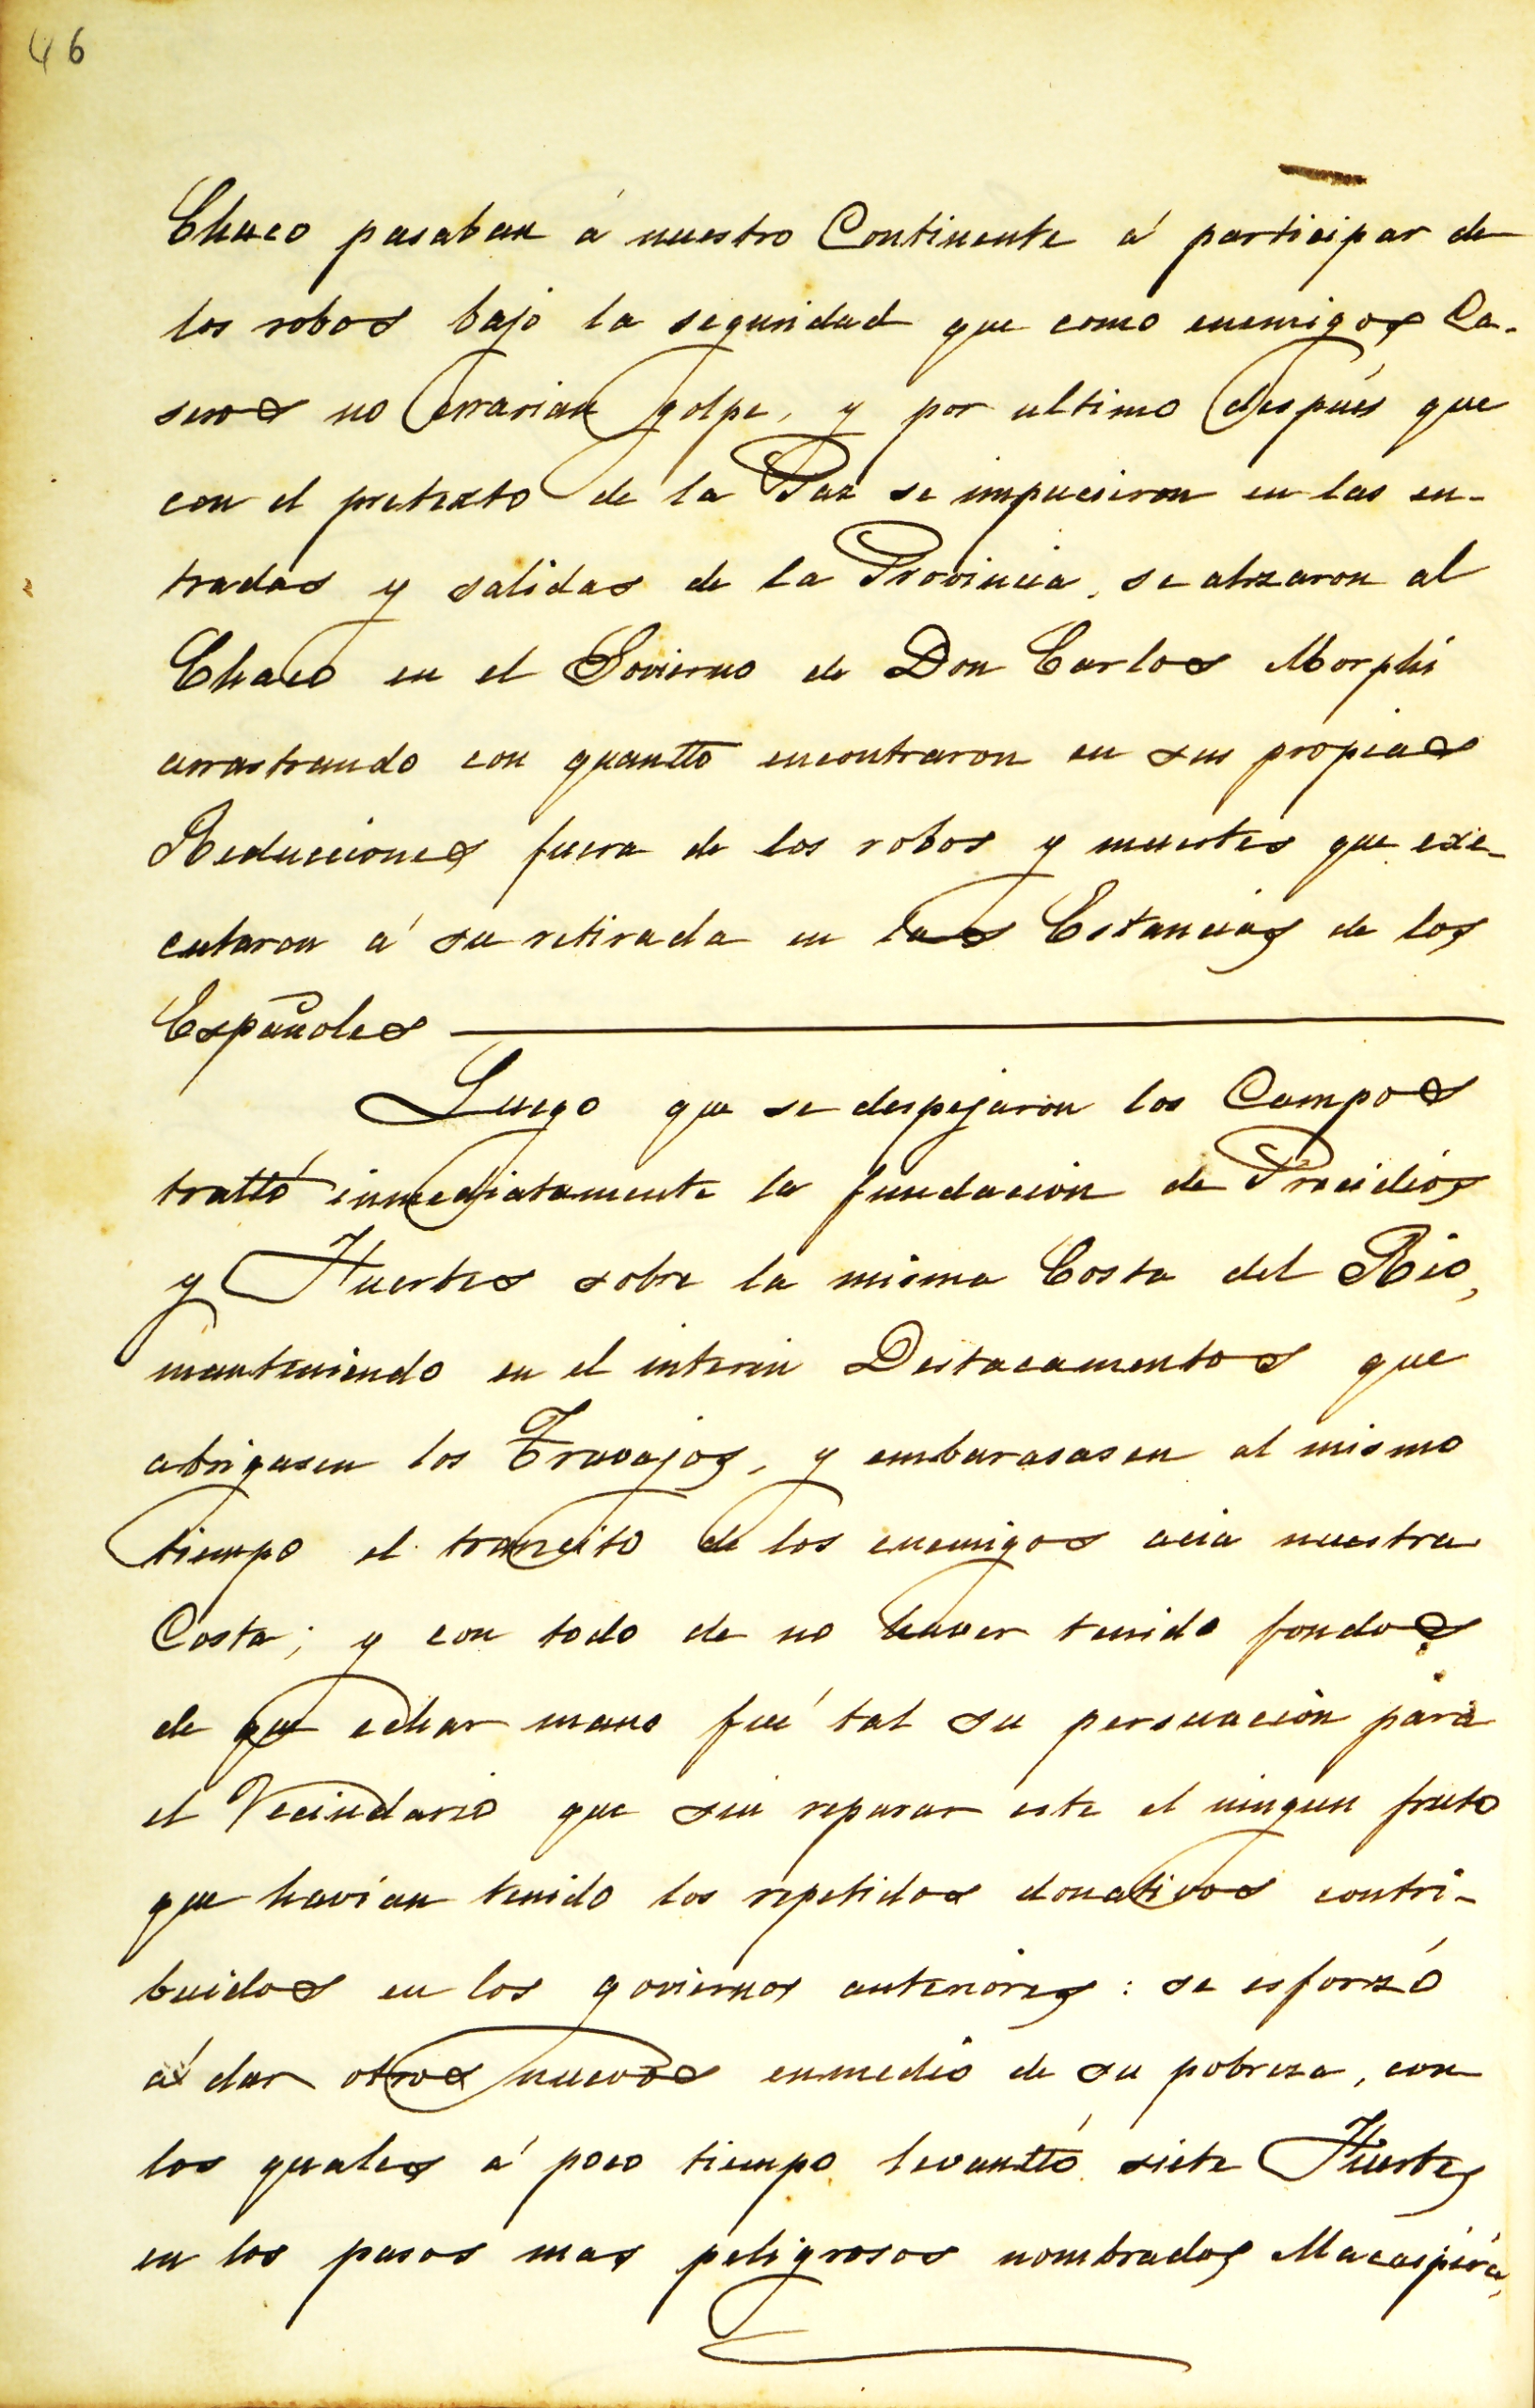 46
Chaco pasaban á nuestro Continente á participar de
los robos bajo la seguridad que como enemigos Ca-
seros no errarian golpe, y por ultimo después que
con el pretexto de la Paz se impucieron en las en-
tradas y salidas de la Provincia, se alzaron al
Chaco en el Govierno de Don Carlos Morphi
arrastrando con quantto encontraron en sus propias
Reducciones fuera de los robos y muertes que exe-
cutaron á su retirada en las Estancias de los
Españoles
Luego que se despejaron los Campos
trattó inmediatamente la fundacion de Precidios
y Fuertes sobre la misma Costa del Rio,
manteniendo en el interin Destacamentos que
abrigasen los Travajos, y embarasasen al mismo
tiempo el tranzito de los enemigos acia nuestra
Costa; y con todo de no haver tenido fondos
de que echar mano fué tal su persuacion para
el Vecindario que sin reparar este el ningun fruto
que havian tenido los repetidos donativos contri-
buidos en los goviernos anteriores: se esforzó
á dar otros nuevos enmedio de su pobreza, con
los quales á poco tiempo levanttó siete Fuertes
en los pasos mas peligrosos nombrados Macaipirá,